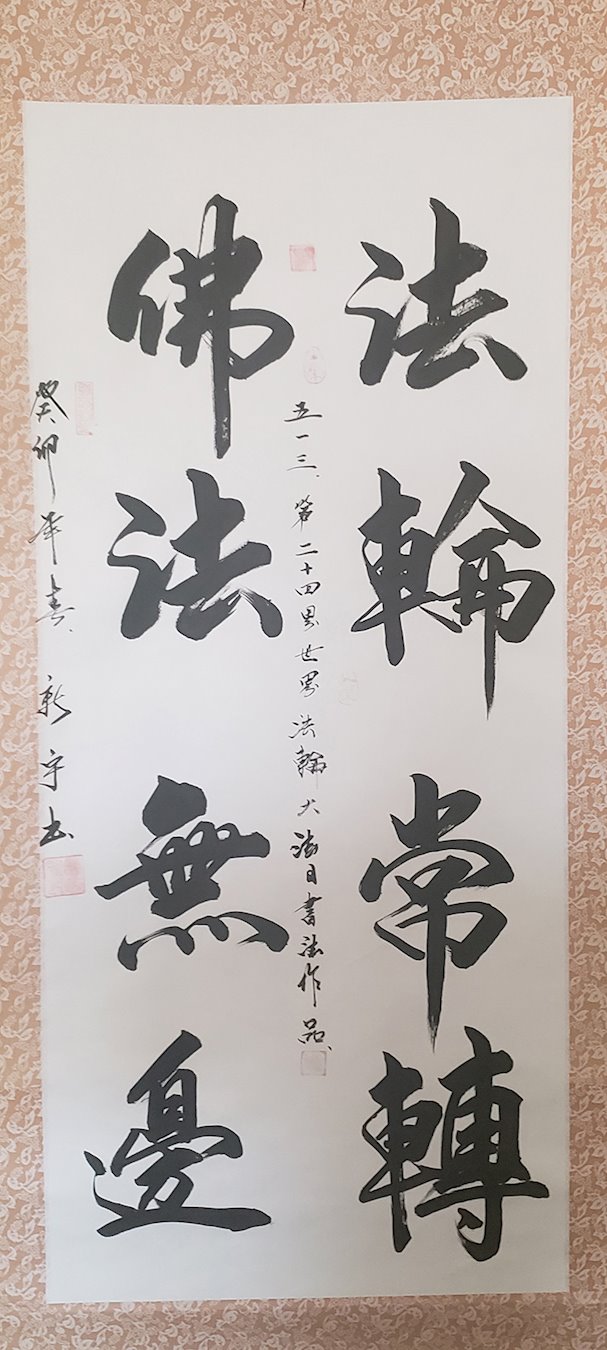 法輪常轉
五一三、第二十四界世界法輪大法日書法作品
佛法無邊
癸卯年春、新宇书